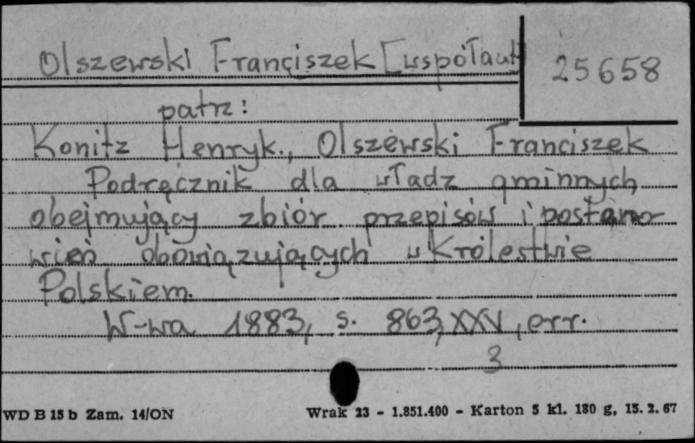 Olszewski Franciszek [współaut
25658
patrz:
Konitz Henryk., Olszewski Franciszek
Podręcznik dla władz gminnych,
obejmujący zbiór przepisów i postano-
wień obowiązujących w Królestwie
Polskiem.
W-wa 1883, s. 863, XXV, err.
3
WD B 15 b Zam. 14/ON Wrak 23 - 1.851.400 - Karton 5 kl. 180 g, 15. 2. 67